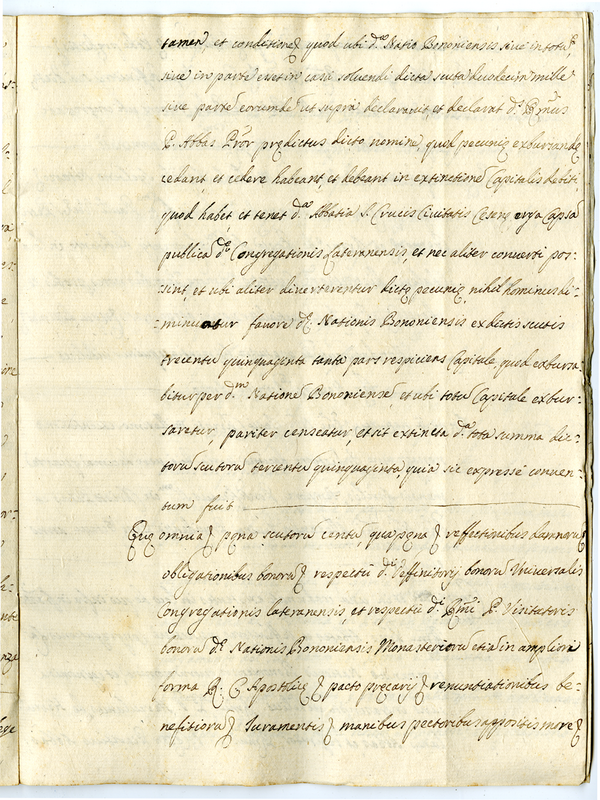 tamen, et conditione quod ubi d.ª Natio Bononiensis sive in totũ
sive in parte esset in casu solvendi dicta scuta duodecim mille
sive partẽ eorumdẽ ut supra declaravit, et declarat d.s Rmus
P. Abbas Prõr prędictus dicto nomine, quod pecunię exbursandę
cedant, et cedere habeant, et debeant in extinctionẽ Capitalis debiti,
quod habet, et tenet d.ª Abbatia S. Crucis Civitatis Cesenę erga Capsã
publicã d.ę Congregationis Lateranensis, et nec aliter converti pos:
:sint, et ubi aliter diverterentur dictę pecunię, nihil hominus di:
:minuatur favore d.ę Nationis Bononiensis ex dictis scutis
trecentũ quinquaginta tanta pars respiciens Capitale, quod exbursa:
bitur per d.m Nationẽ Bononiensẽ, et ubi totũ Capitale exbur:
saretur, pariter censeatur, et sit extincta d.ª tota summa dic:
torũ scutorũ tercentũ quinquaginta, quia sic expresse conven:
tum fuit
Quę omnia pęna scutorũ centũ, qua pęna reffectionibus damnorũ
obligationibus bonorũ respectu d.i Deffinitorij bonorũ Universalis
Congregationis Lateranensis, et respectu d.i Rmi P. Visitatoris
bonorũ d.ę Nationis Bononiensis Monasteriorũ etiã in ampliori
forma R. C. Apostlicę pacto pręcarij renuntiationibus be:
nefitiorũ Iuramentis manibus pectoribus appositis more